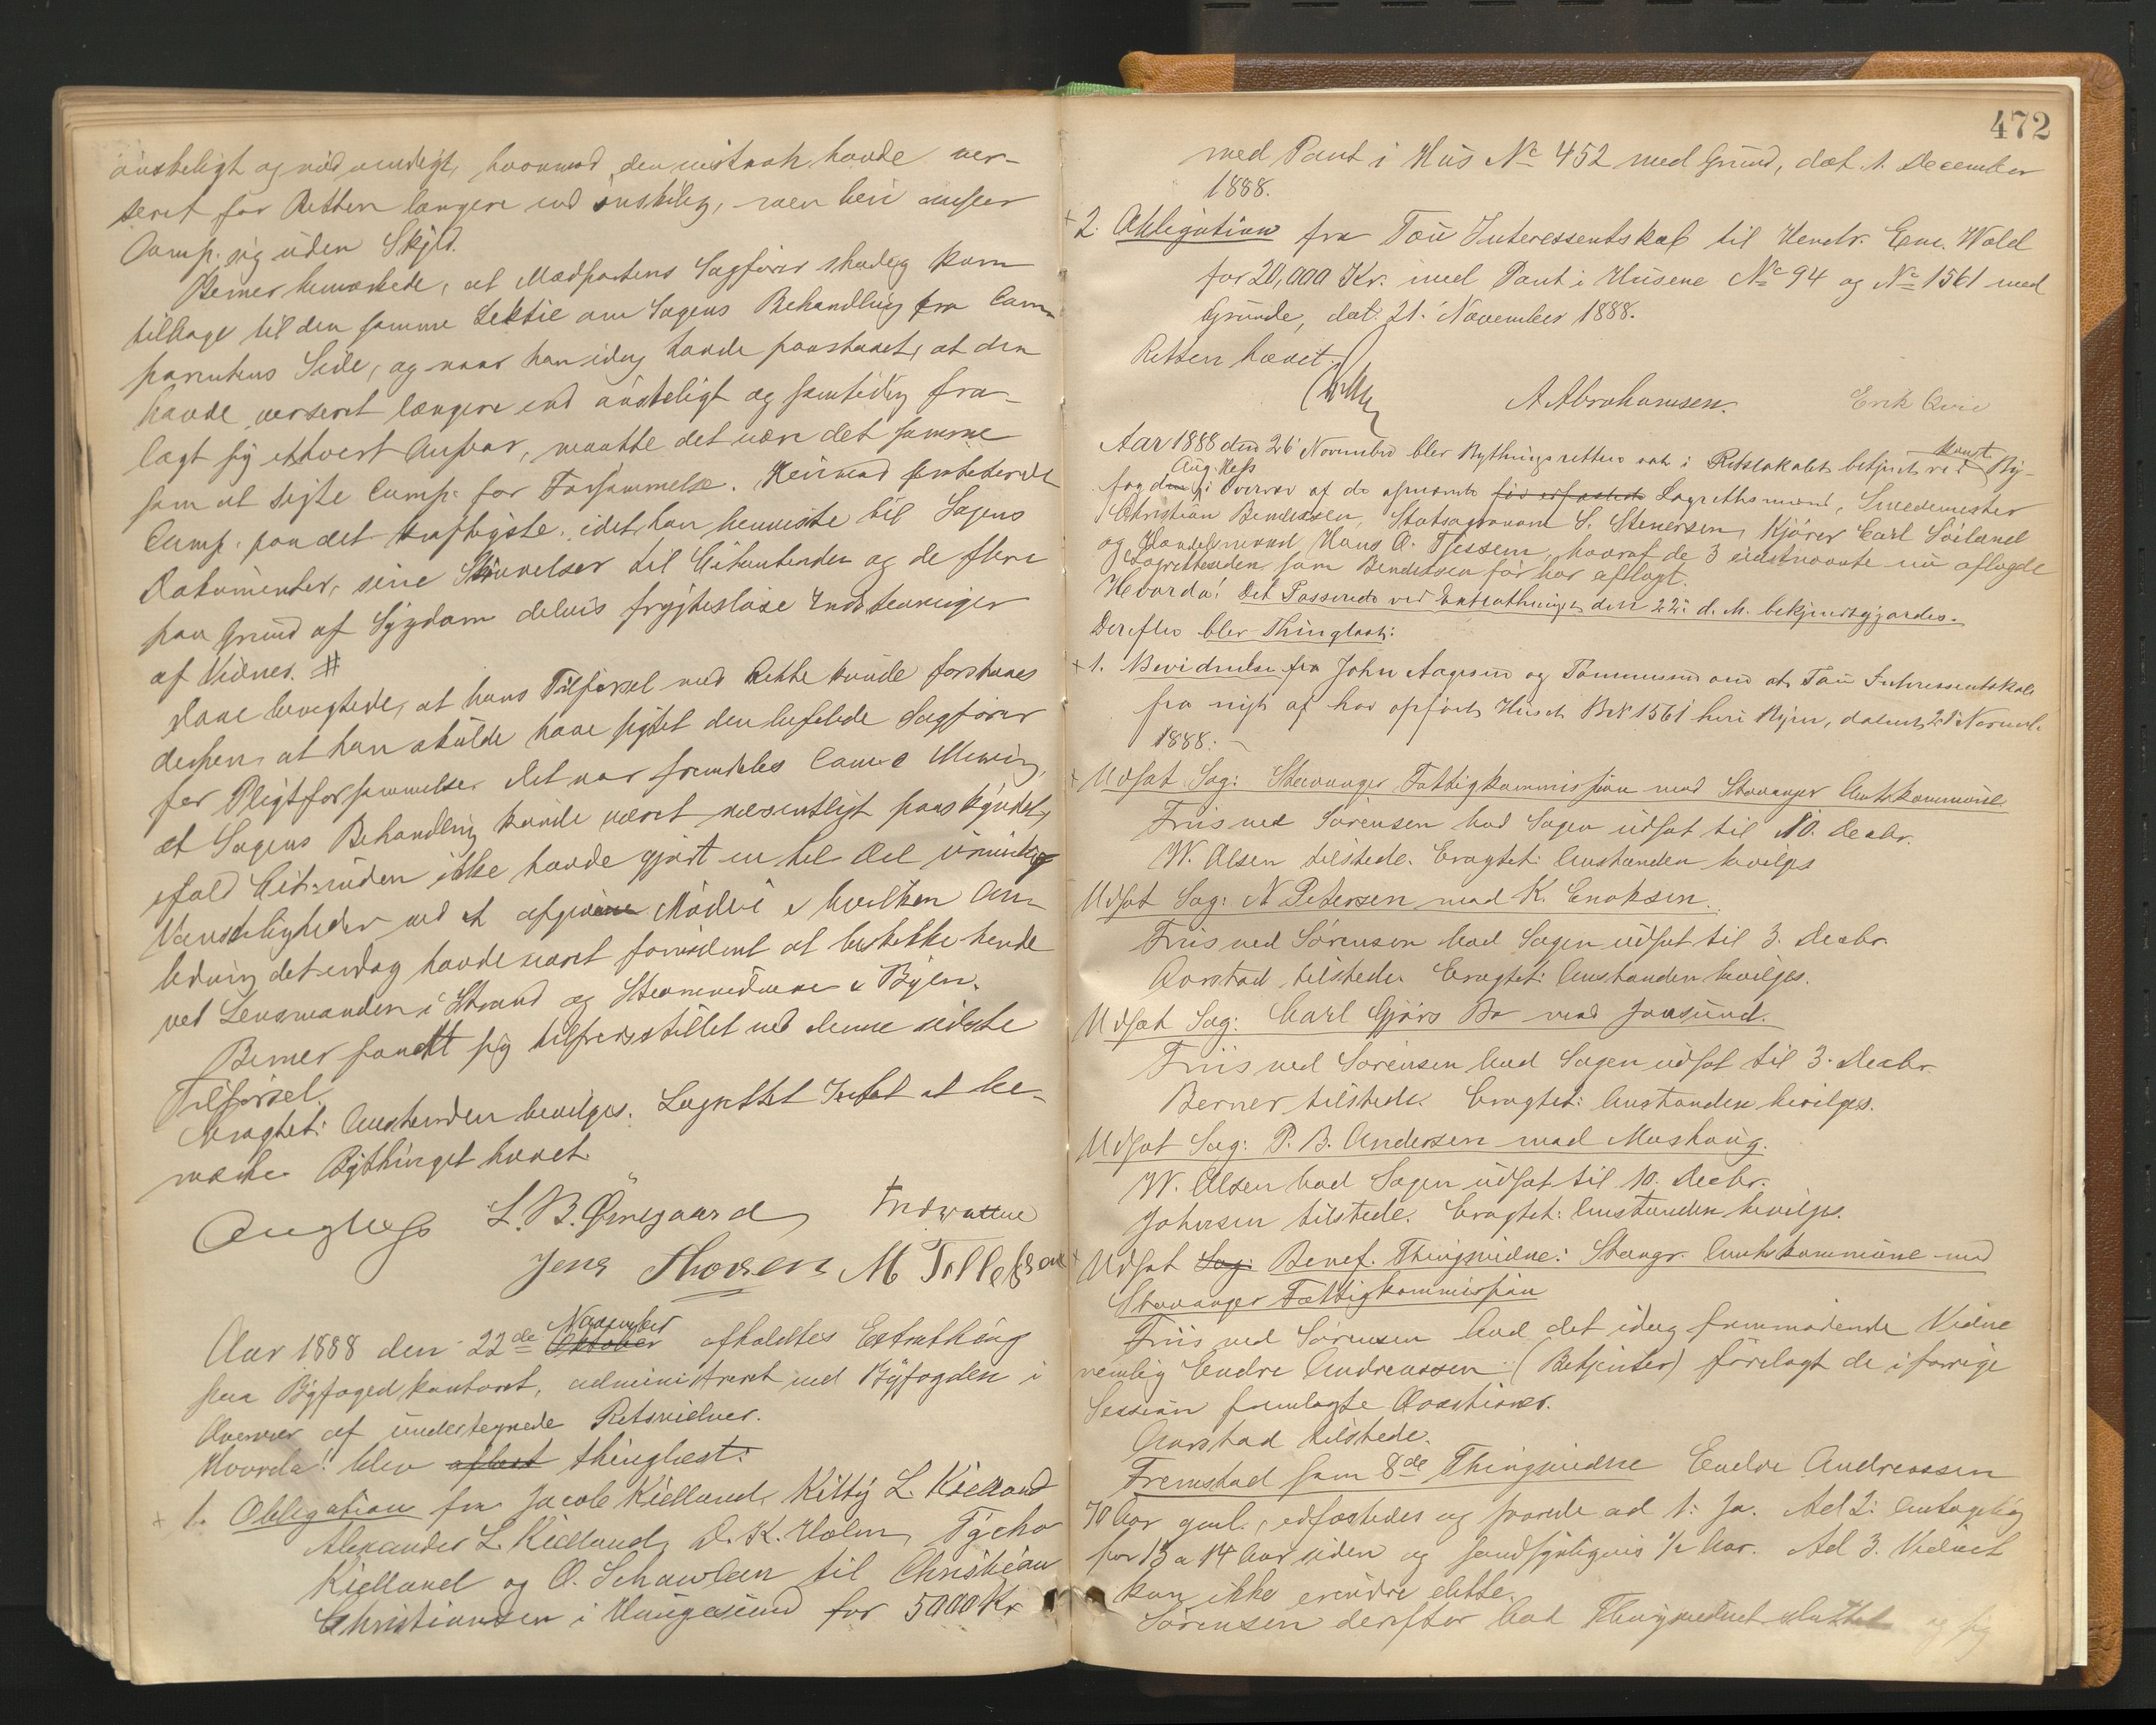 önskeligt og nødvendigt, hvormod den vistnok havde ver-
seret for Retten længere end önskelig, men heri anser
Comp. sig uden Skyld.
Berner bemærkede, at Modpartens Sagfører stadig kom
tilbage til den samme Lektie om Sagens Behandling fra Com-
parentens Side, og naar han idag havde paastaaet, at den
havde verseret længere end önskeligt og samtidig fra-
lagt sig ethvert Ansvar, maatte det være det samme
som at sigte Comp. for Forsømmelse. Herimod protesterede
Comp. paa det kraftigste, idet han henviste til Sagens
Dokumenter, sine Skrivelser til Citantinden og de flere
paa Grund af Sygdom delvis frugtesløse Indstevninger
af Vidner. #
Aane benegtede, at hans Tilførsel ved Rette kunde forstaaes
derhen, at han skulde have sigtet den befalede Sagfører
for Pligtforsømmelse. Det var fremdeles Comp.s Mening,
at Sagens Behandling kunde været væsentligt paaskyndet,
ifald Citantinden ikke havde gjort en hel Del unødig
Vanskeligheder ved at afgive Møde i hvilken An-
ledning det endog havde været fornødent at beskikke hende
ved Lensmanden i Strand og Stevnevidnerne i Byen.
Berner fandt sig tilfredsstillet ved denne sidste
Tilførsel.
Eragtet: Anstanden bevilges. Lagrettet Intet at be-
mærke. Bythinget hævet.
Aug Hess L. B. Øvregaard
Jens Thorsen M Tollefsen
Aar 1888 den 22de Oktober November afholdtes Extrathing
paa Byfogedkontoret, administreret ved Byfogden i
Overvær af undertegnede Retsvidner.
Hvorda! blev aflæst thinglæst:
+ 1. Obligation fra Jacob Kielland, Kitty L. Kielland
Alexander L. Kielland, D. K. Holm, Tycho
Kielland og O. Schawlan til Christian
Christiansen i Haugesund for 5000 Kr
472
med Pant i Hus No 452 med Grund, dat. 1. December
1888.
+ 2. Obligation fra Tou Interessentskab til Hendr. Enc. Wold
for 20,000 Kr. med Pant i Husene No 94 og No 1561 med
Grunde, dat. 21. November 1888.
Retten hævet.
A Abrahamsen. Erik Qvie
Aar 1888 den 26 November blev Bythingsretten sat i Retslokalet betjent ved konst. By-
fogden Aug. Hess i Overvær af de opnævnte før edfæstede Lagrettesmænd, Smedemester
Christian Bendixsen, Statsagronom S. Stenersen, Kjører Carl Søiland
og Handelsmand Hans A. Tjessem, hvoraf de 3 sidstnævnte nu aflagde
Lagretteseden, som Bendixsen før har aflagt.
Hvorda! Det Passerede ved Extrathinget den 22: d. M. bekjendtgjordes.
Derefter blev thinglæst:
+ 1. Bevidnelse fra John Aagesen og Tømmesen om at Tou Interessentskab
fra nyt af har opført Huset No 1561 heri Byen, dateret 21 Novemb.
1888.
+ Udsat Sag: Stavanger Fattigkommission mod Stavanger Amtskommune
Friis ved Sørensen bad Sagen udsat til 10. Decbr.
W. Olsen tilstede. Eragtet: Anstanden bevilges
Udsat Sag: N Petersen mod K. Enoksen.
Friis ved Sørensen bad Sagen udsat til 3. Decbr.
Aarstad tilstede. Eragtet: Anstanden bevilges.
Udsat Sag: Carl Gjørs Bo mod Jonsund.
Friis ved Sørensen bad Sagen udsat til 3. Decbr.
Berner tilstede. Eragtet: Anstanden bevilges.
Udsat Sag: P. B. Andersen mod Moshaug.
W. Olsen bad Sagen udsat til 10. Decbr.
Johnsen tilstede. Eragtet: Anstanden bevilges.
+ Udsat Sag: Benef. Thingsvidne: Stavgr. Amtskommune mod
Stavanger Fattigkommission
Friis ved Sørensen bad det idag fremmødende Vidne
nemlig Endre Andreassen (Betjenter) forelagt de i forrige
Session fremlagte Qvæstioner.
Aarstad tilstede.
Fremstod som 8de Thingsvidne Endre Andreassen
70 Aar gml., edfæstedes og svarede ad 1: Ja. Ad 2: Antagelig
for 13 a 14 Aar siden og sandsynligvis 1/2 Aar. Ad 3. Vidnet
kan ikke erindre dette.
Sørensen derefter bad Thingsvidnet sluttet og sig